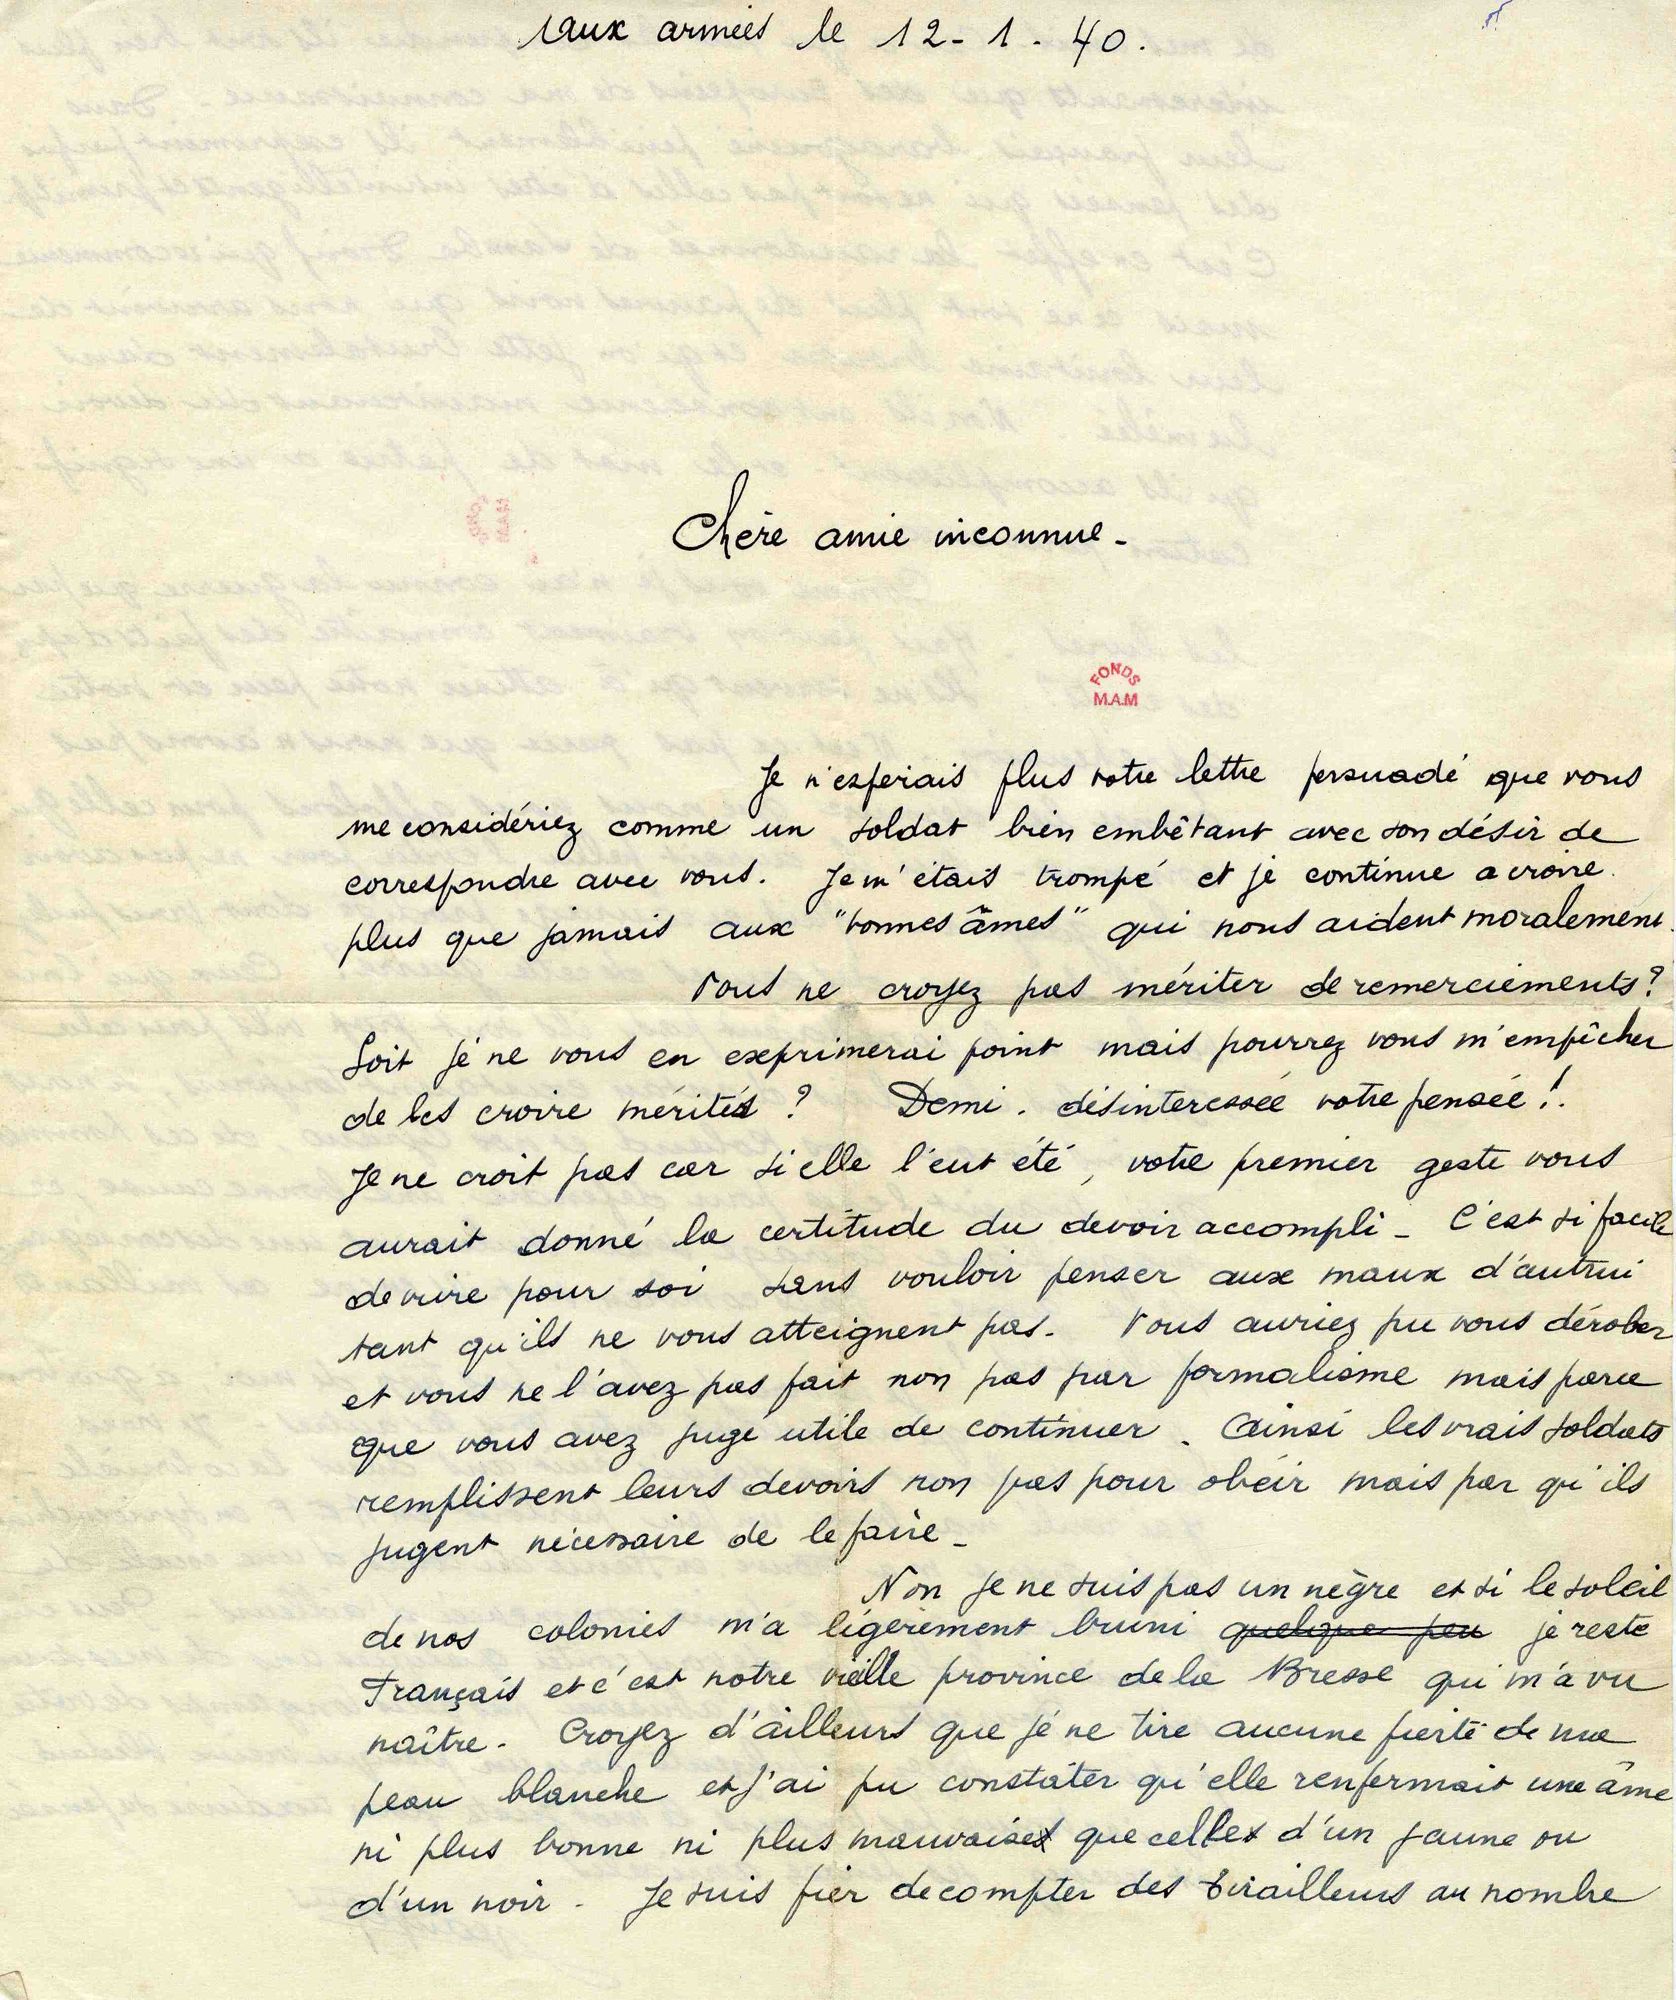 aux armées le 12-1-40.
Chère amie inconnue-
FONDS
M.A.M
Je n'espérais plus votre lettre persuadé que vous
me considériez comme un soldat bien embêtant avec son désir de
correspondre avec vous. Je m'étais trompé et je continue a croire
plus que jamais aux "bonnes âmes" qui nous aident moralement.
Vous ne croyez pas mériter de remerciements?
Soit je ne vous en exprimerai point mais pourrez vous m'empêcher
de les croire mérités ? Demi. désinteressée votre pensée!.
Je ne croit pas car si elle l'eut été, votre premier geste vous
aurait donné la certitude du devoir accompli- C'est si facile
de vivre pour soi sans vouloir penser aux maux d'autrui
tant qu'ils ne vous atteignent pas. Vous auriez pu vous dérober
et vous ne l'avez pas fait non pas par formalisme mais parce
que vous avez jugé utile de continuer. Ainsi les vrais soldats
remplissent leurs devoirs non pas pour obéir mais par qu'ils
jugent nécessaire de le faire-
Non je ne suis pas un nègre et si le soleil
de nos colonies m'a légèrement bruni quelque peu je reste
Français et c'est notre vieille province de la Bresse qui m'a vu
naître. Croyez d'ailleurs que je ne tire aucune fierté de ma
peau blanche et j'ai pu constater qu'elle renfermait une âme
ni plus bonne ni plus mauvaise que celle d'un jaune ou
d'un noir. Je suis fier de compter des tirailleurs au nombre